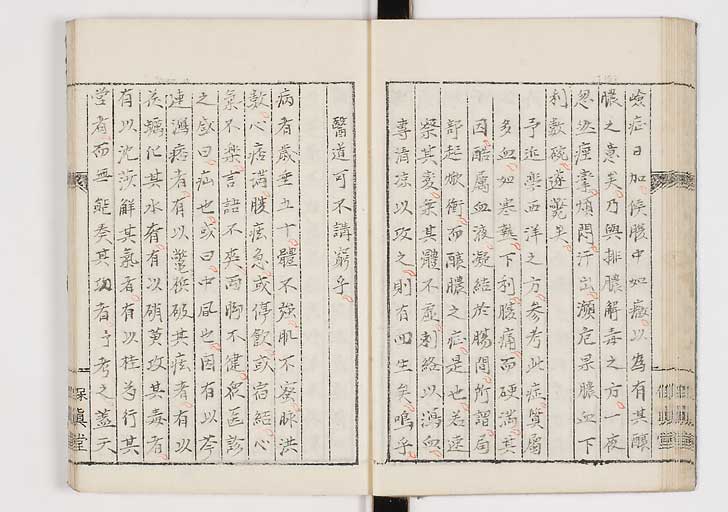 險症日加候腹中如癥以為有其釀
膿之意矣乃與排膿解毒之方一夜
忽然痙攣煩悶汗出瀕危果膿血下
利數碗遂斃矣
予近來西洋之方參考此症質屬
多血如寒熱下利腹痛而硬滿甚
因酷厲血液凝結於腸間所謂局
部起焮衝而釀膿之症是也若速
察其變氣其體不虛刺絡以瀉血
專清涼以攻之則有回生矣嗚乎
醫道可不講窮乎
病者歲垂五十體不強肌不密脉洪
數心痞滿腹痃急或停飲或宿結心
氣不樂言語不爽面胸不健衆医診
之或曰疝也或曰中風也因有以芩
連瀉痞者有以鱉椒破其痃者有以
茂蠣化其水者有以硝黄攻其毒者
有以沈莎解其氣者有以桂芍行其
營者而無能奏其功者予考之蓋天
保眞堂